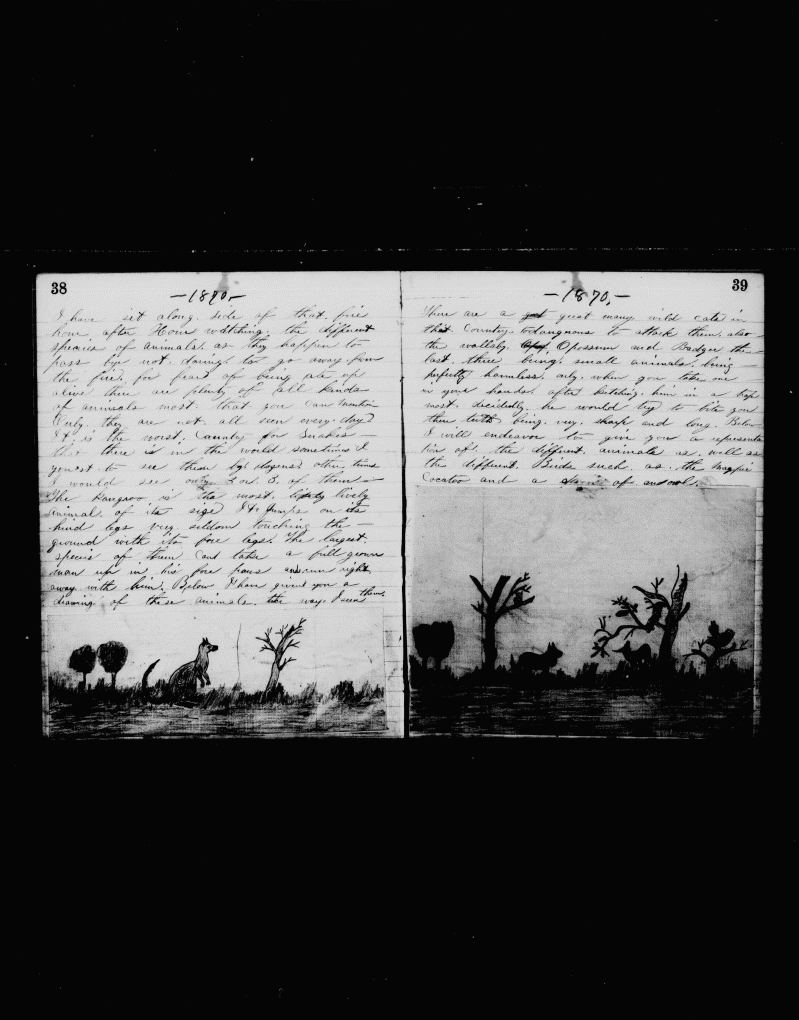 38
-1870,-
I have set along side of that fire
hour after Hour watching the different
species of animals, as they happen to
pass by not daring to go away from
the fire, for fear of being ate up
alive there are plenty of all kinds
of animals most that you can mention
Only they are not all seen every day
It is the worst Country for Snakes—
that there is in the world sometimes I
to see them by dozens other times
I would see only 2 or 3 of them—
The Kangroo is the most lively
animal of its size It jumps on its
hind legs very seldom touching the—
ground with its fore legs. The largest
species of them can take a full grown
man up in his fore paws and run right
away with him. Below I have given you a
drawing of these animals, the way I seen them.
39
-1870,-
There are a great many wild cats in
that Country to attack them, also
the wallaby Opossum and Badger the—
last three being small animals, being—
perfectly harmless, only when you take one
in your hands, after ketching him in a trap
most decidedly he would try to bite you
their teeth being very sharp and long. Below
I will endeavor to give you a representa
tion of the different animals as well as
the different Birds such as the Magpie
Cocatoo and a of an owl.